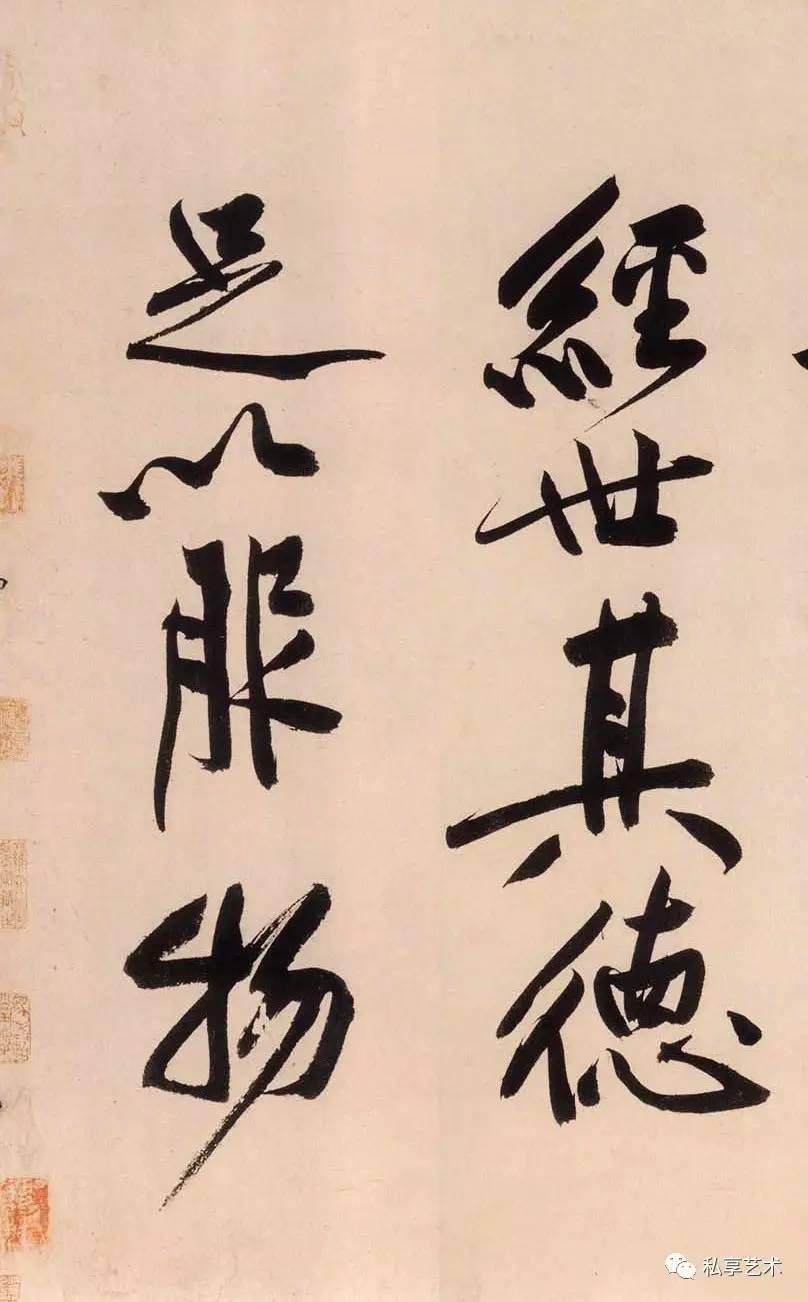 經世其德
足以服物
私享艺术